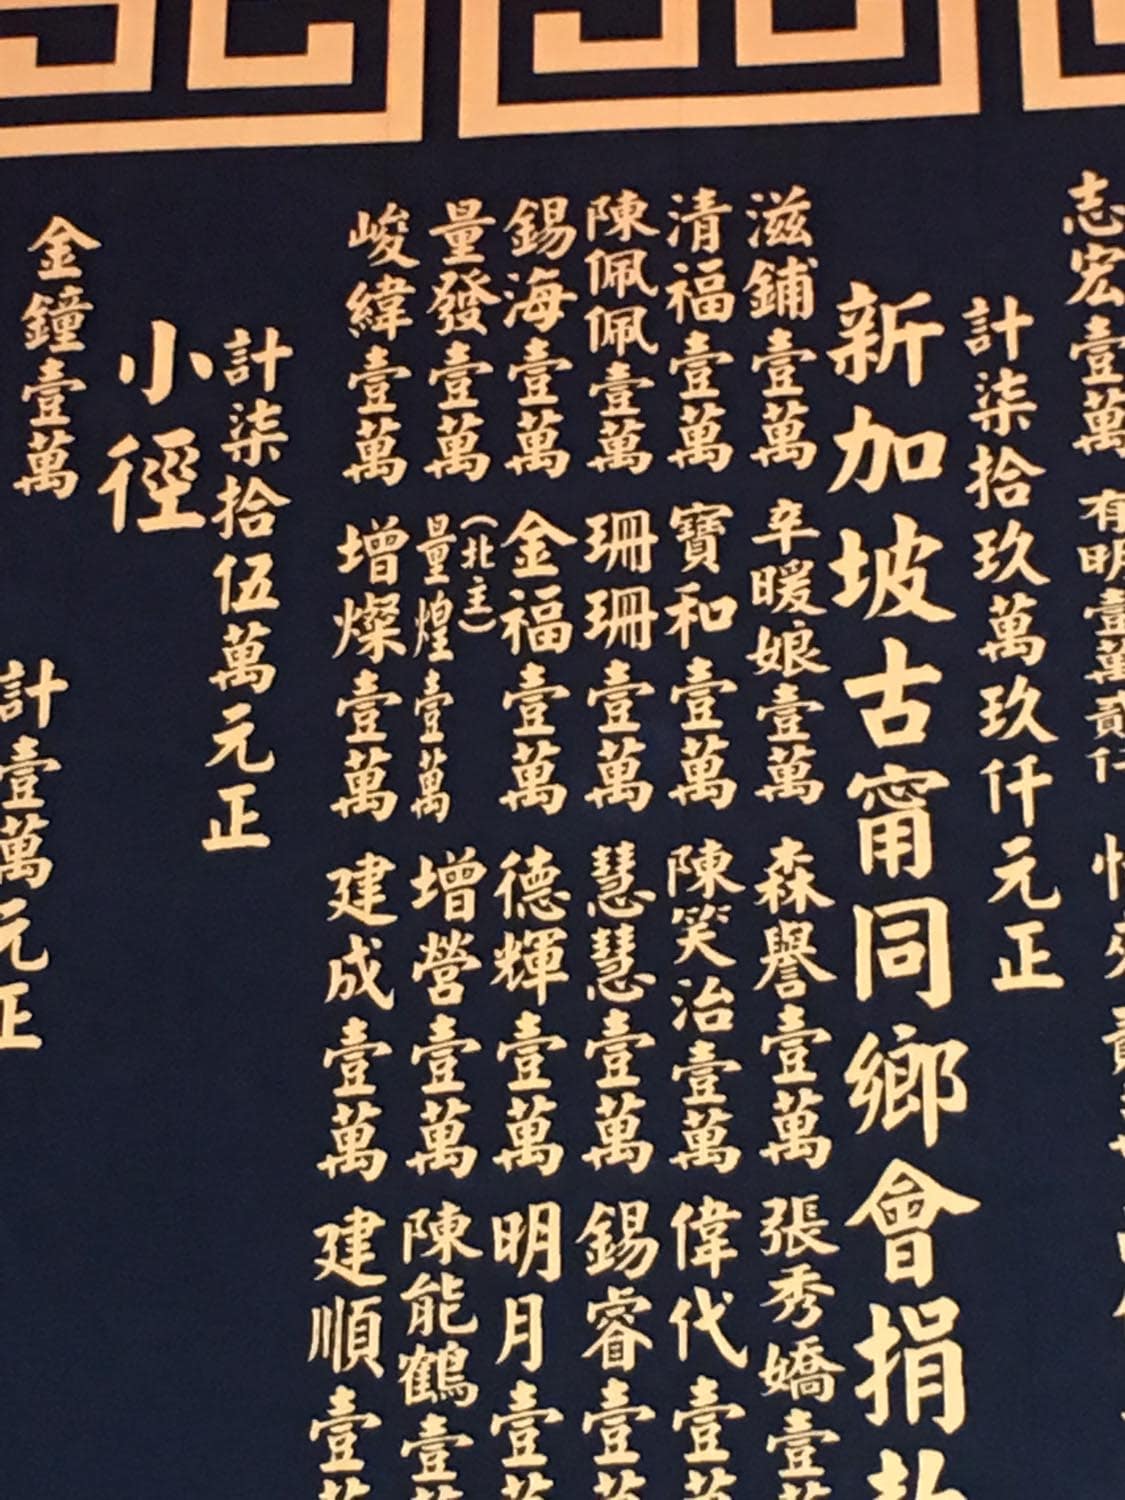 志宏壹萬 有明壹萬貳仟
計柒拾玖萬玖仟元正
新加坡古甯同鄉會捐款
滋鋪壹萬 卒暖娘壹萬 森譽壹萬 張秀嬌壹
清福壹萬 寶和壹萬 陳笑治壹萬 偉代壹
陳佩佩壹萬 珊珊壹萬 慧慧壹萬 錫睿壹
錫海壹萬 金福壹萬 德輝壹萬 明月壹
量發壹萬 (北主)量煌壹萬 增營壹萬 陳能鶴壹
峻緯壹萬 增燦壹萬 建成壹萬 建順壹
計柒拾伍萬元正
小徑
金鐘壹萬
計壹萬元正